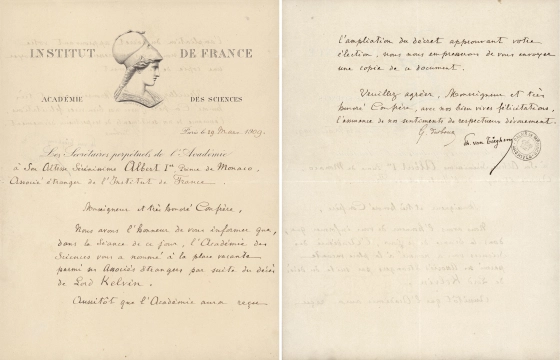 INSTITUT DE FRANCE
ACADÉMIE DES SCIENCES
Paris le 29 Mars 1909.
Les Secrétaires perpétuels de l'Académie
à Son Altesse Sérénissime Albert 1er, Prince de Monaco,
Associé étranger de l'Institut de France.
Monseigneur et très honoré Confrère,
Nous avons l'honneur de vous informer que,
dans la séance de ce jour, l'Académie des
Sciences vous a nommé à la place vacante
parmi ses Associés étrangers par suite du décès
de Lord Kelvin.
Aussitôt que l'Académie aura reçu
l'ampliation du décret approuvant votre
élection, nous nous empresserons de vous envoyer
une copie de ce document.
Veuillez agréer, Monseigneur et très
honoré Confrère, avec nos bien vives félicitations,
l'assurance de nos sentiments de respectueux dévouement.
G. Darboux
Ph. van Tieghem